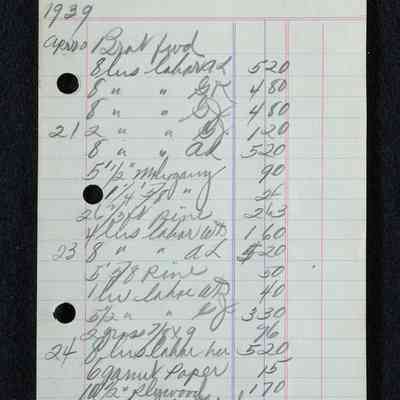 1939
Apr 20 Boat food
8 hrs labor AL 520
8 " " GR 480
8 " " 480
21 2 " " 120
8 " " AL 520
5' 1/2" Mahogany 90
1' 1/4' 7/8 "
Pine 243
4 hrs labor WD 160
23 8 " " AL 520
5' 7/8 Pine 50
1 hr labor WD 40
5 1/2 " " 330
2 gross 7/8 x 9 96
24 8 hrs labor her 520
6 garnet Paper 15
10' 1/2" Plywood 170